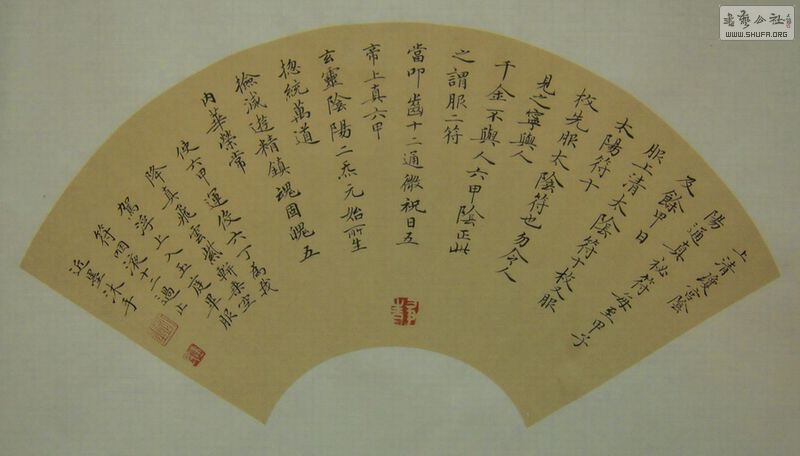 上清瓊宮陰
陽通真祕符每至甲子
及餘甲日
服上清太陰符十枚又服
太陽符十
枚先服太陰符也勿令人
見之寧與人
千金不與人六甲陰正此
之謂服二符
當叩齒十二通微祝曰五
帝上真六甲
玄靈陰陽二炁元始所生
捴統萬道
撿滅遊精鎮魂固魄五
內華榮常
使六甲運役六丁為我
降真飛雲紫軿乘空
駕浮上入玉庭畢服
符咽液十二過止
近墨沐手
書藝公社
WWW.SHUFA.ORG